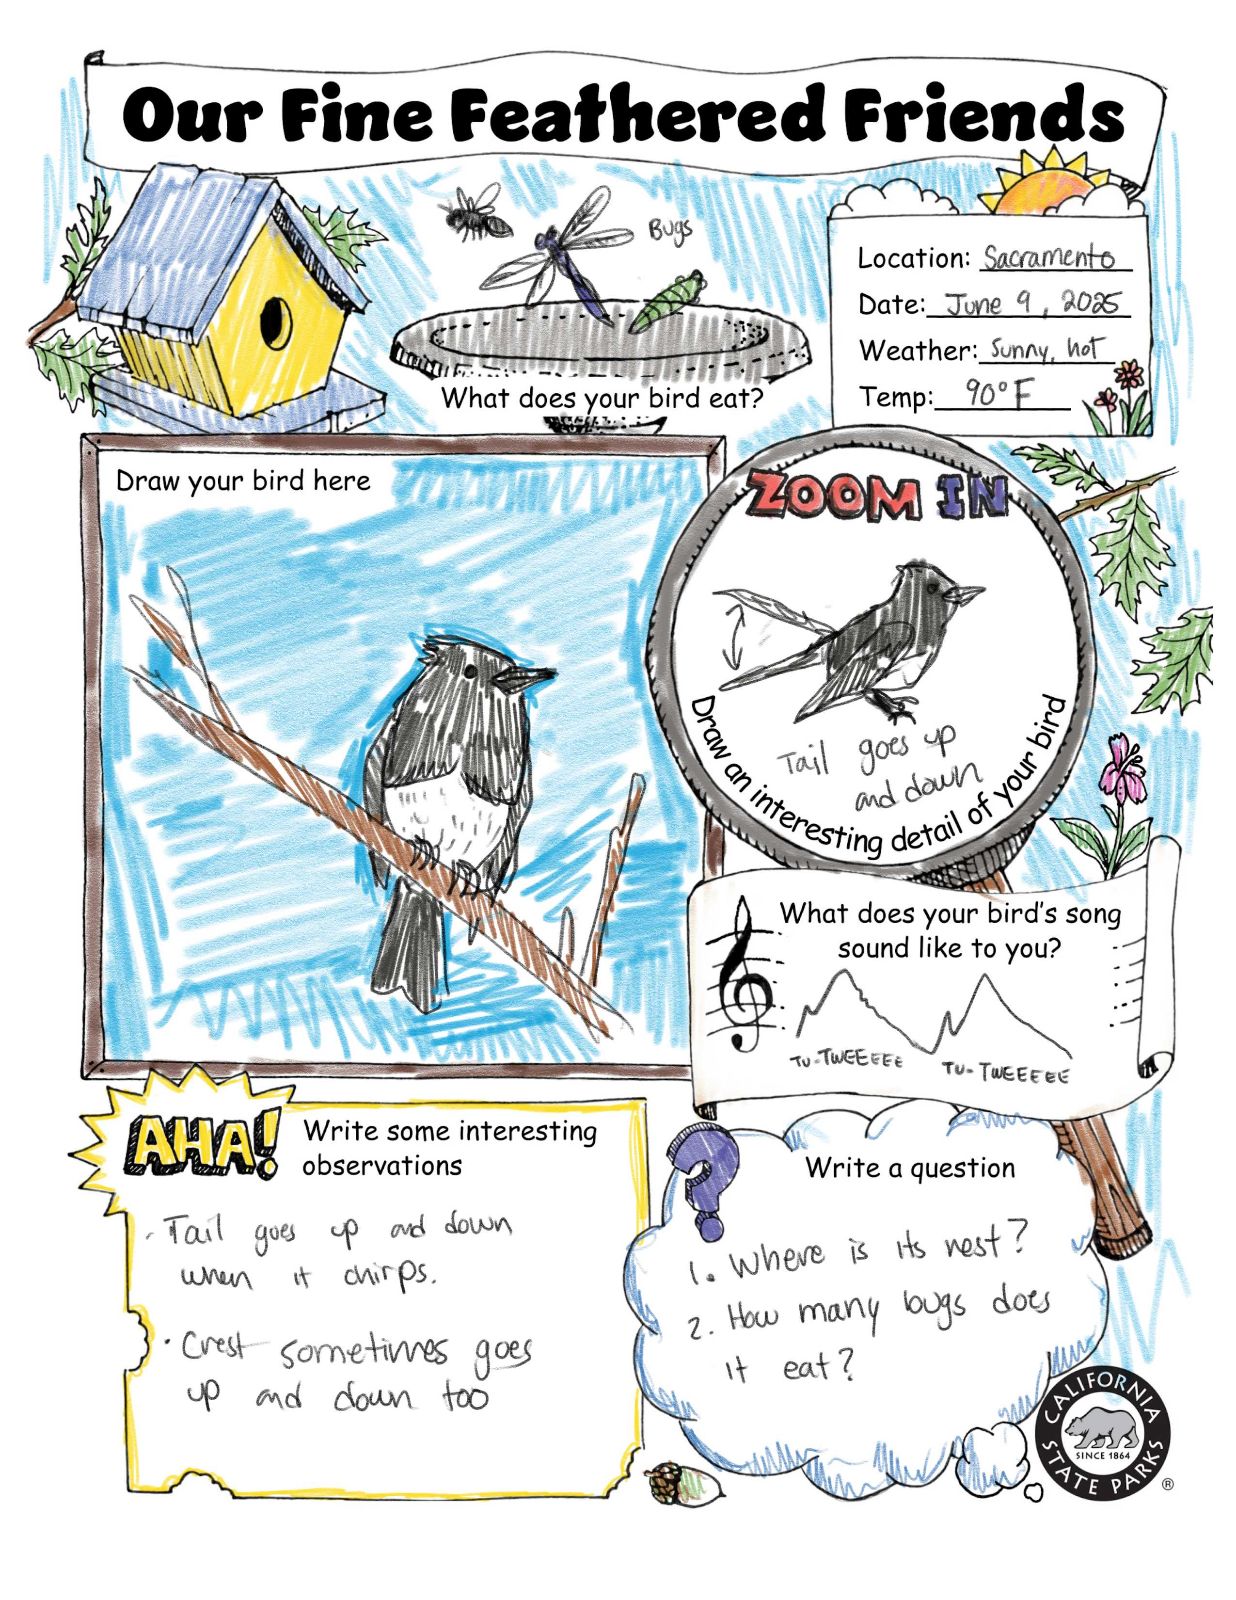 Our Fine Feathered Friends
Bugs
What does your bird eat?
Location: Sacramento
Date: June 9, 2025
Weather: Sunny, hot
Temp: 90°F
Draw your bird here
ZOOM IN
Tail goes up
and down
Draw an interesting detail of your bird
What does your bird's song
sound like to you?
TU-TWEEEEE TU-TWEEEEE
AHA!
Write some interesting
observations
· Tail goes up and down
when it chirps.
· Crest sometimes goes
up and down too
?
Write a question
1. Where is its nest?
2. How many bugs does
it eat?
CALIFORNIA
SINCE 1864
STATE PARKS
®